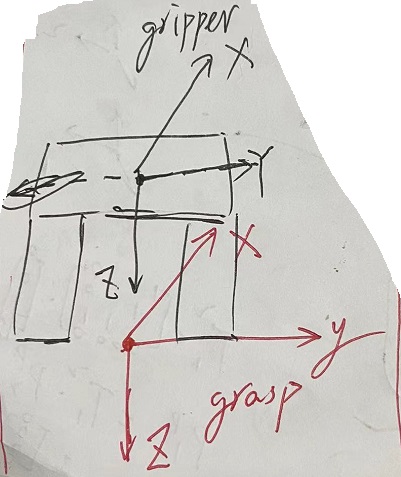 gripper
X
Y
Z
X
y
grasp
Z